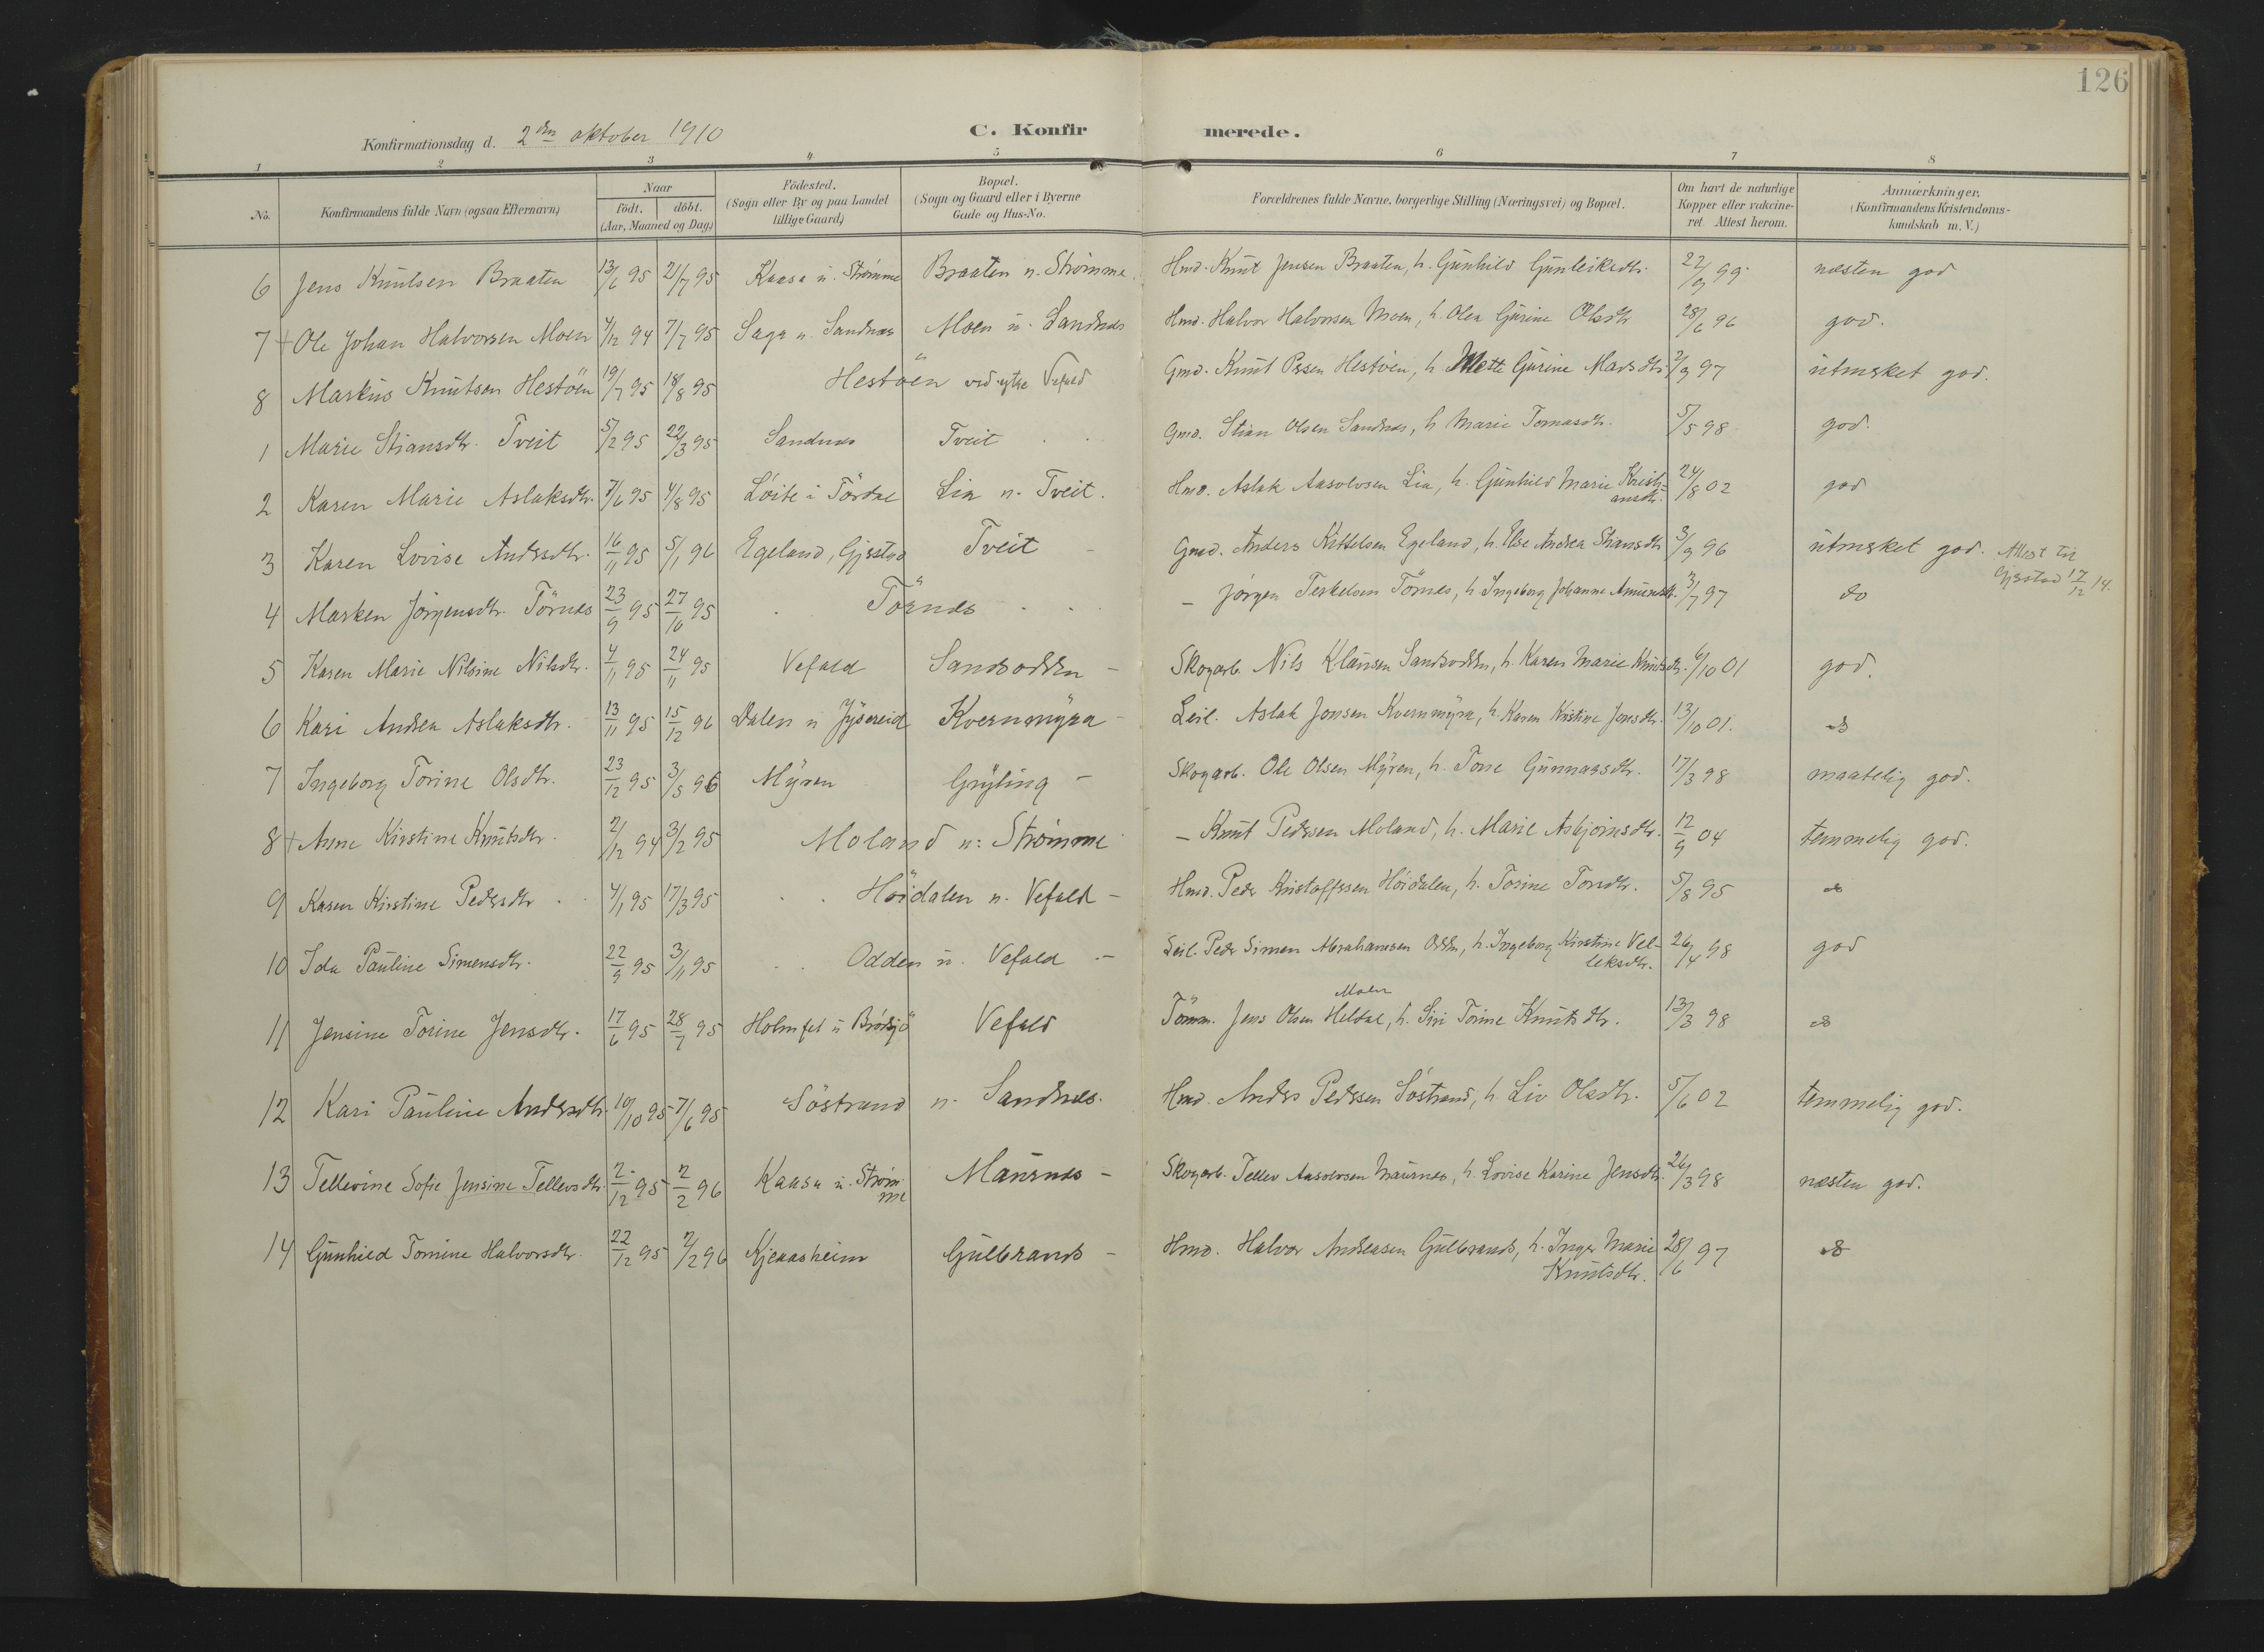 126
Konfirmationsdag d. 2den oktober 1910
C. Konfirmerede.
1 2 3 4 5 6 7 8
No. Konfirmandens fulde Navn (ogsaa Efternavn) Naar födt. döbt. (Aar, Maaned og Dag) Födested. (Sogn eller By og paa Landet tillige Gaard) Bopæl. (Sogn og Gaard eller i Byerne Gade og Hus-No. Forældrenes fulde Navne, borgerlige Stilling (Næringsvei) og Bopæl. Om havt de naturlige Kopper eller vakcineret. Attest herom. Anmærkninger. (Konfirmandens Kristendomskundskab m.V.)
6 Jens Knutsen Braaten 13/6 95 21/7 95 Kaasa u. Strømme Braaten u. Strømme Hmd. Knut Jensen Braaten, h. Gunhild Gunleiksdtr. 22/9 99 næsten god
7 + Ole Johan Halvorsen Moen 4/12 94 7/7 95 Saga u. Sandnes Moen u. Sandnes Hmd. Halvor Halvorsen Moen, h. Olea Gurine Olsdtr 28/6 96 god.
8 Markus Knutsen Hestöen 19/7 95 18/8 95 Hestöen ved ytre Vefald Gmd. Knut Ossen Hestöen, h. Mette Gurine Mads dtr. 2/9 97 utmerket god.
1 Marie Stiansdtr. Tveit 5/2 95 22/3 95 Sandnes Tveit Gmd. Stian Olsen Sandnes, h Marie Tomasdtr. 5/5 98 god.
2 Karen Marie Aslaksdtr. 7/6 95 4/8 95 Löite i Tördal Lia u. Tveit. Hmd. Aslak Aasolvsen Lia, h. Gunhild Marie Kristi-
ansdtr. 24/8 02 god
3 Karen Lovise Andersdtr. 16/11 95 5/1 96 Egeland, Gjerstad Tveit - Gmd. Anders Kittelsen Egeland, h. Else Andrea Stiansdtr 3/9 96 utmerket god. Attest til
Gjerstad 17/12 14.
4 Marken Jörgensdtr. Törnes 23/9 95 27/10 95 Törnes - Jörgen Terkelsen Törnes, h Ingeborg Johanne Amundsdtr. 3/7 97 do
5 Karen Marie Nilsine Nilsdtr. 4/11 95 24/11 95 Vefald Sandsodden - Skogarb. Nils Klausen Sandsodden, h. Karen Marie Knutsdtr. 6/10 01 god.
6 Kari Andrea Aslaksdtr. 13/11 95 15/12 96 Dalen u Jysereid Kvernmyra - Leil. Aslak Jonsen Kvernmyra, h. Karen Kristine Jonsdtr. 13/10 01. do
7 Ingeborg Torine Olsdtr. 23/12 95 3/5 96 Myren Gryting - Skogarb. Ole Olsen Myren, h. Tone Gunnarsdtr. 17/3 98 maatelig god.
8 + Anne Kirstine Knutsdtr. 2/12 94 3/2 95 Moland u. Strømme - Knut Pedersen Moland, h. Marie Asbjørnsdtr. 12/9 04 temmelig god.
9 Karen Kirstine Pedersdtr 4/1 95 17/3 95 Höidalen u. Vefald - Hmd. Peder Kristoffersen Höidalen, h. Torine Tordtr. 5/8 95 do
10 Ida Pauline Simensdtr. 22/9 95 3/11 95 Odden u. Vefald - Leil. Peder Simen Abrahamsen Odden, h. Ingeborg Kirstine Vel-
leksdtr. 26/4 98 god
11 Jensine Torine Jensdtr. 17/6 95 28/7 95 Holmfet u Brödsjö Vefald Tömm. Jens Olsen Heldal, h. Siri Torine Knutsdtr. 13/3 98 do
Moen
12 Kari Pauline Andersdtr. 10/10 95 7/6 95 Söstrand u. Sandnes. Hmd. Anders Pedersen Söstrand, h. Liv Olsdtr. 5/6 02 temmelig god.
13 Tellevine Sofie Jensine Tellevsdtr. 2/12 95 2/2 96 Kaasa u. Ström-
me Maurnes - Skogarb. Tellev Aasolvsen Maurnes, h. Lovise Karine Jensdtr. 26/3 98 næsten god.
14 Gunhild Tomine Halvorsdtr. 22/12 95 2/2 96 Kjeaasheim Gulbrands - Hmd. Halvor Andreasen Gulbrands, h. Inger Marie
Knutsdtr. 28/6 97 do